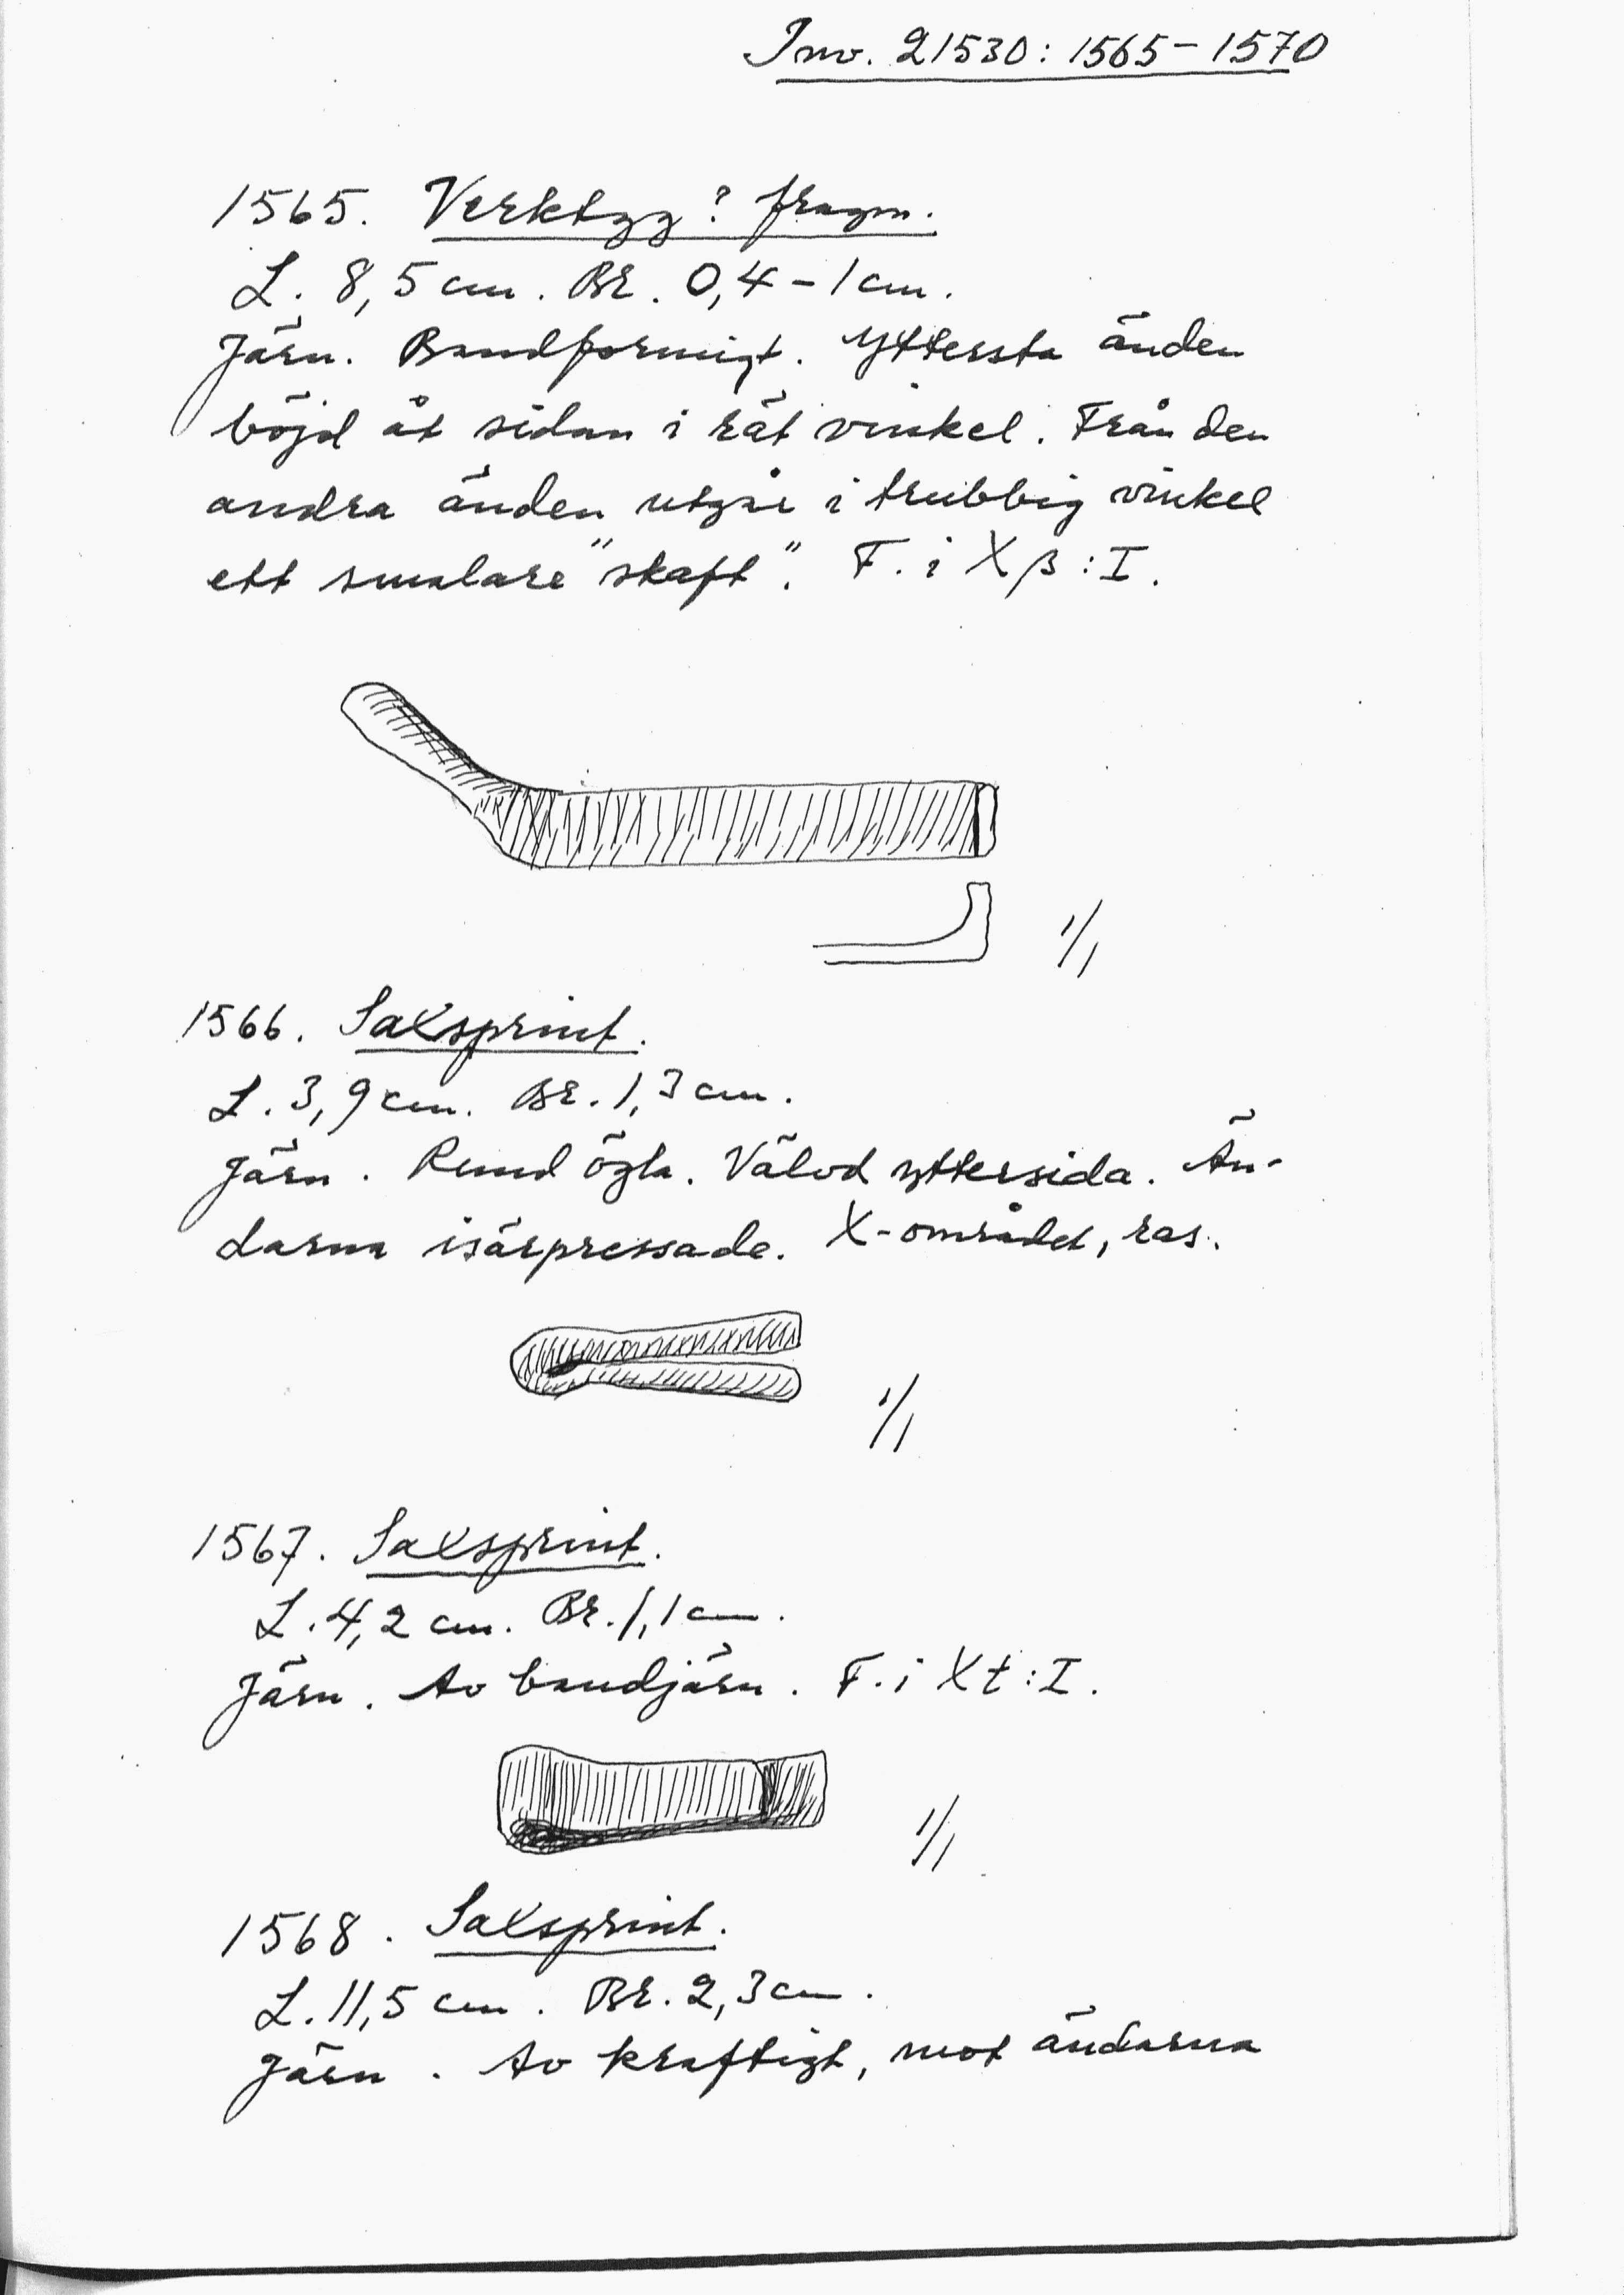 Inv. 21530: 1565–1570
1565. Verktyg? fragm.
L. 8,5 cm. Br. 0,4–1 cm.
Järn. Bandformigt. Yttersta änden
böjd åt sidan i rät vinkel. Från den
andra änden utgår i trubbig vinkel
ett smalare "skaft". F. i Xβ:I.
1/1
1566. Saxsprint.
L. 3,9 cm. Br. 1,3 cm.
Järn. Rund ögla. Välvd yttersida. Än-
darna isärpressade. X-området, ras.
1/1
1567. Saxsprint.
L. 4,2 cm. Br. 1,1 cm.
Järn. Av bandjärn. F. i Xt:I.
1/1
1568. Saxsprint.
L. 11,5 cm. Br. 2,3 cm.
Järn. Av kraftigt, mot ändarna